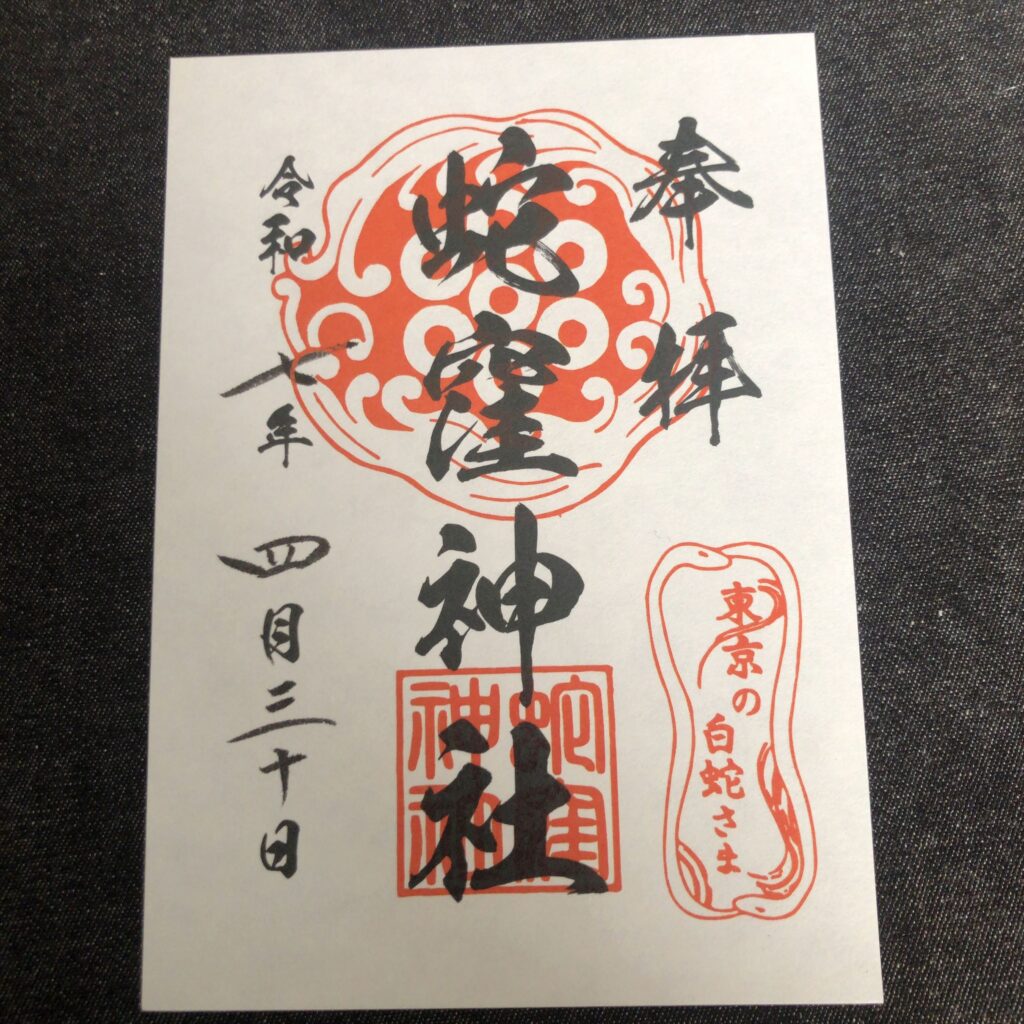 奉拝
東京の
白蛇さま
蛇窪神社
蛇窪
神社
令和七年四月三十日